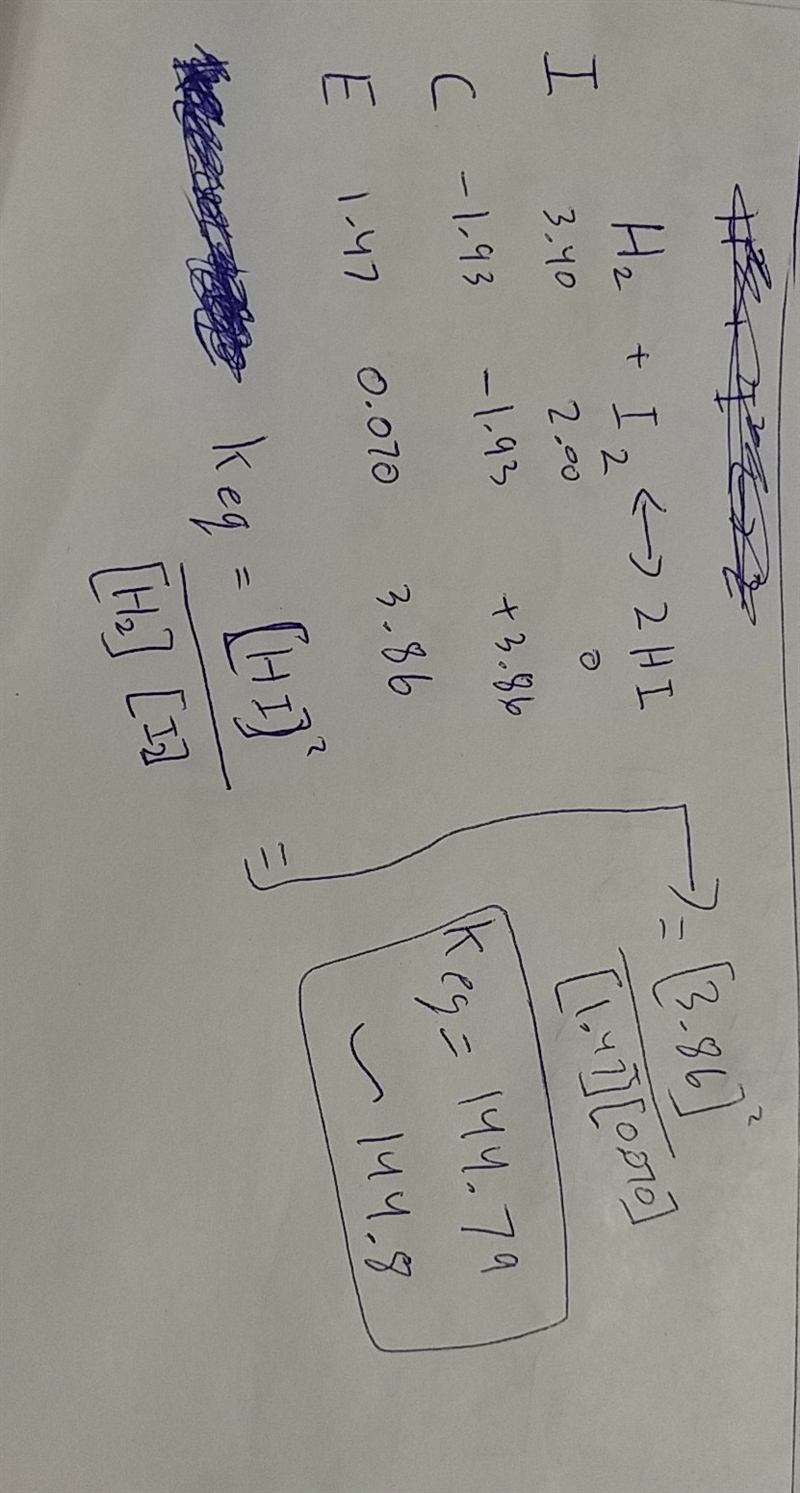 H₂ + I₂ ↔ 2HI
I 3.40 2.00 0
C -1.93 -1.93 +3.86
E 1.47 0.070 3.86
Keq = [HI]²
[H₂] [I₂]
=
= [3.86]²
[1.47][0.070]
Keq = 144.79
~ 144.8